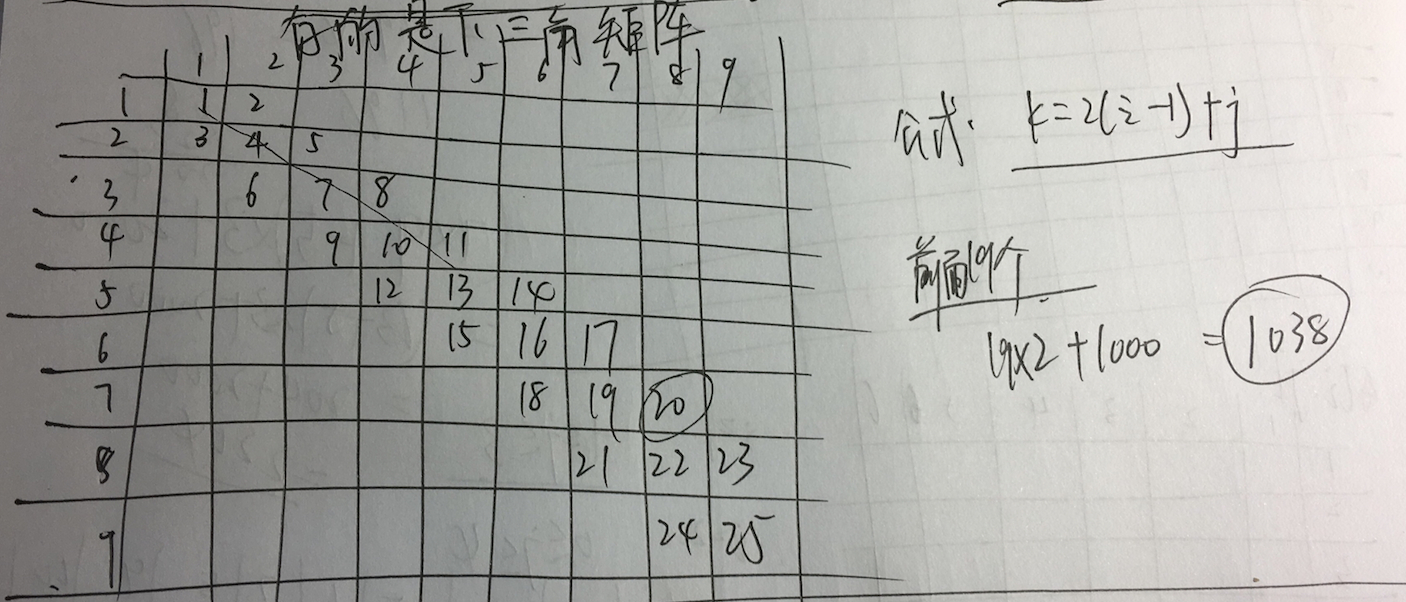 有的是下三角矩阵
1 2 3 4 5 6 7 8 9
1 1 2
2 3 4 5
3 6 7 8
4 9 10 11
5 12 13 14
6 15 16 17
7 18 19 20
8 21 22 23
9 24 25
公式. k=2(i-1)+j
前面19个
19×2+1000 = 1038